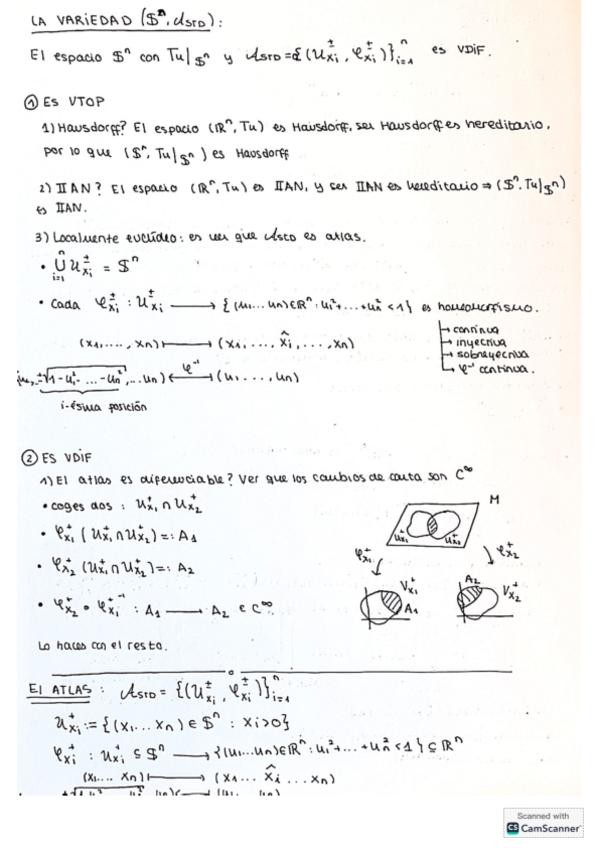 LA VARIEDAD (𝕊ⁿ, 𝒜STD):
El espacio 𝕊ⁿ con Tu|𝕊ⁿ y 𝒜STD = {(U±xi, φ±xi)}ⁿi=1 es VDIF.
① ES VTOP
1) Hausdorff? El espacio (ℝⁿ, Tu) es Hausdorff, ser Hausdorff es hereditario,
por lo que (𝕊ⁿ, Tu|𝕊ⁿ) es Hausdorff
2) IIAN? El espacio (ℝⁿ, Tu) es IIAN, y ser IIAN es hereditario ⇒ (𝕊ⁿ, Tu|𝕊ⁿ)
es IIAN.
3) Localmente euclídeo: es ver que 𝒜STD es atlas.
• ⋃ⁿi=1 U±xi = 𝕊ⁿ
• Cada φ±xi : U±xi ⟶ {(u1...un)∈ℝⁿ: u1²+...+un² <1} es homeomorfismo.
↳ continua
(x1,...., xn) ⟼ (x1, ..., x̂i, ..., xn)
↳ inyectiva
↳ sobreyectiva
↳ φ⁻¹ continua.
±√1-u1²-...-un², ... un) ⟵φ⁻¹ (u1, ..., un)
i-ésima posición
② ES VDIF
1) El atlas es diferenciable? Ver que los cambios de carta son C∞
• coges dos: U⁺x1 ∩ U⁺x2
• φ⁺x1 (U⁺x1 ∩ U⁺x2) =: A1
• φ⁺x2 (U⁺x1 ∩ U⁺x2) =: A2
• φ⁺x2 ∘ φ⁺x1⁻¹ : A1 ⟶ A2 ∈ C∞.
Lo haces con el resto.
M
U⁺x1 U⁺x2
φ⁺x1 φ⁺x2
V⁺x1 A1
A2 V⁺x2
El ATLAS: 𝒜STD = {(U±xi, φ±xi)}ⁿi=1
U±xi := {(x1...xn) ∈ 𝕊ⁿ : xi>0}
φ±xi : U±xi ⊆ 𝕊ⁿ ⟶ {(u1...un)∈ℝⁿ: u1²+...+un² <1} ⊆ ℝⁿ
(x1.... xn) ⟼ (x1... x̂i ... xn)
Scanned with
CS CamScanner